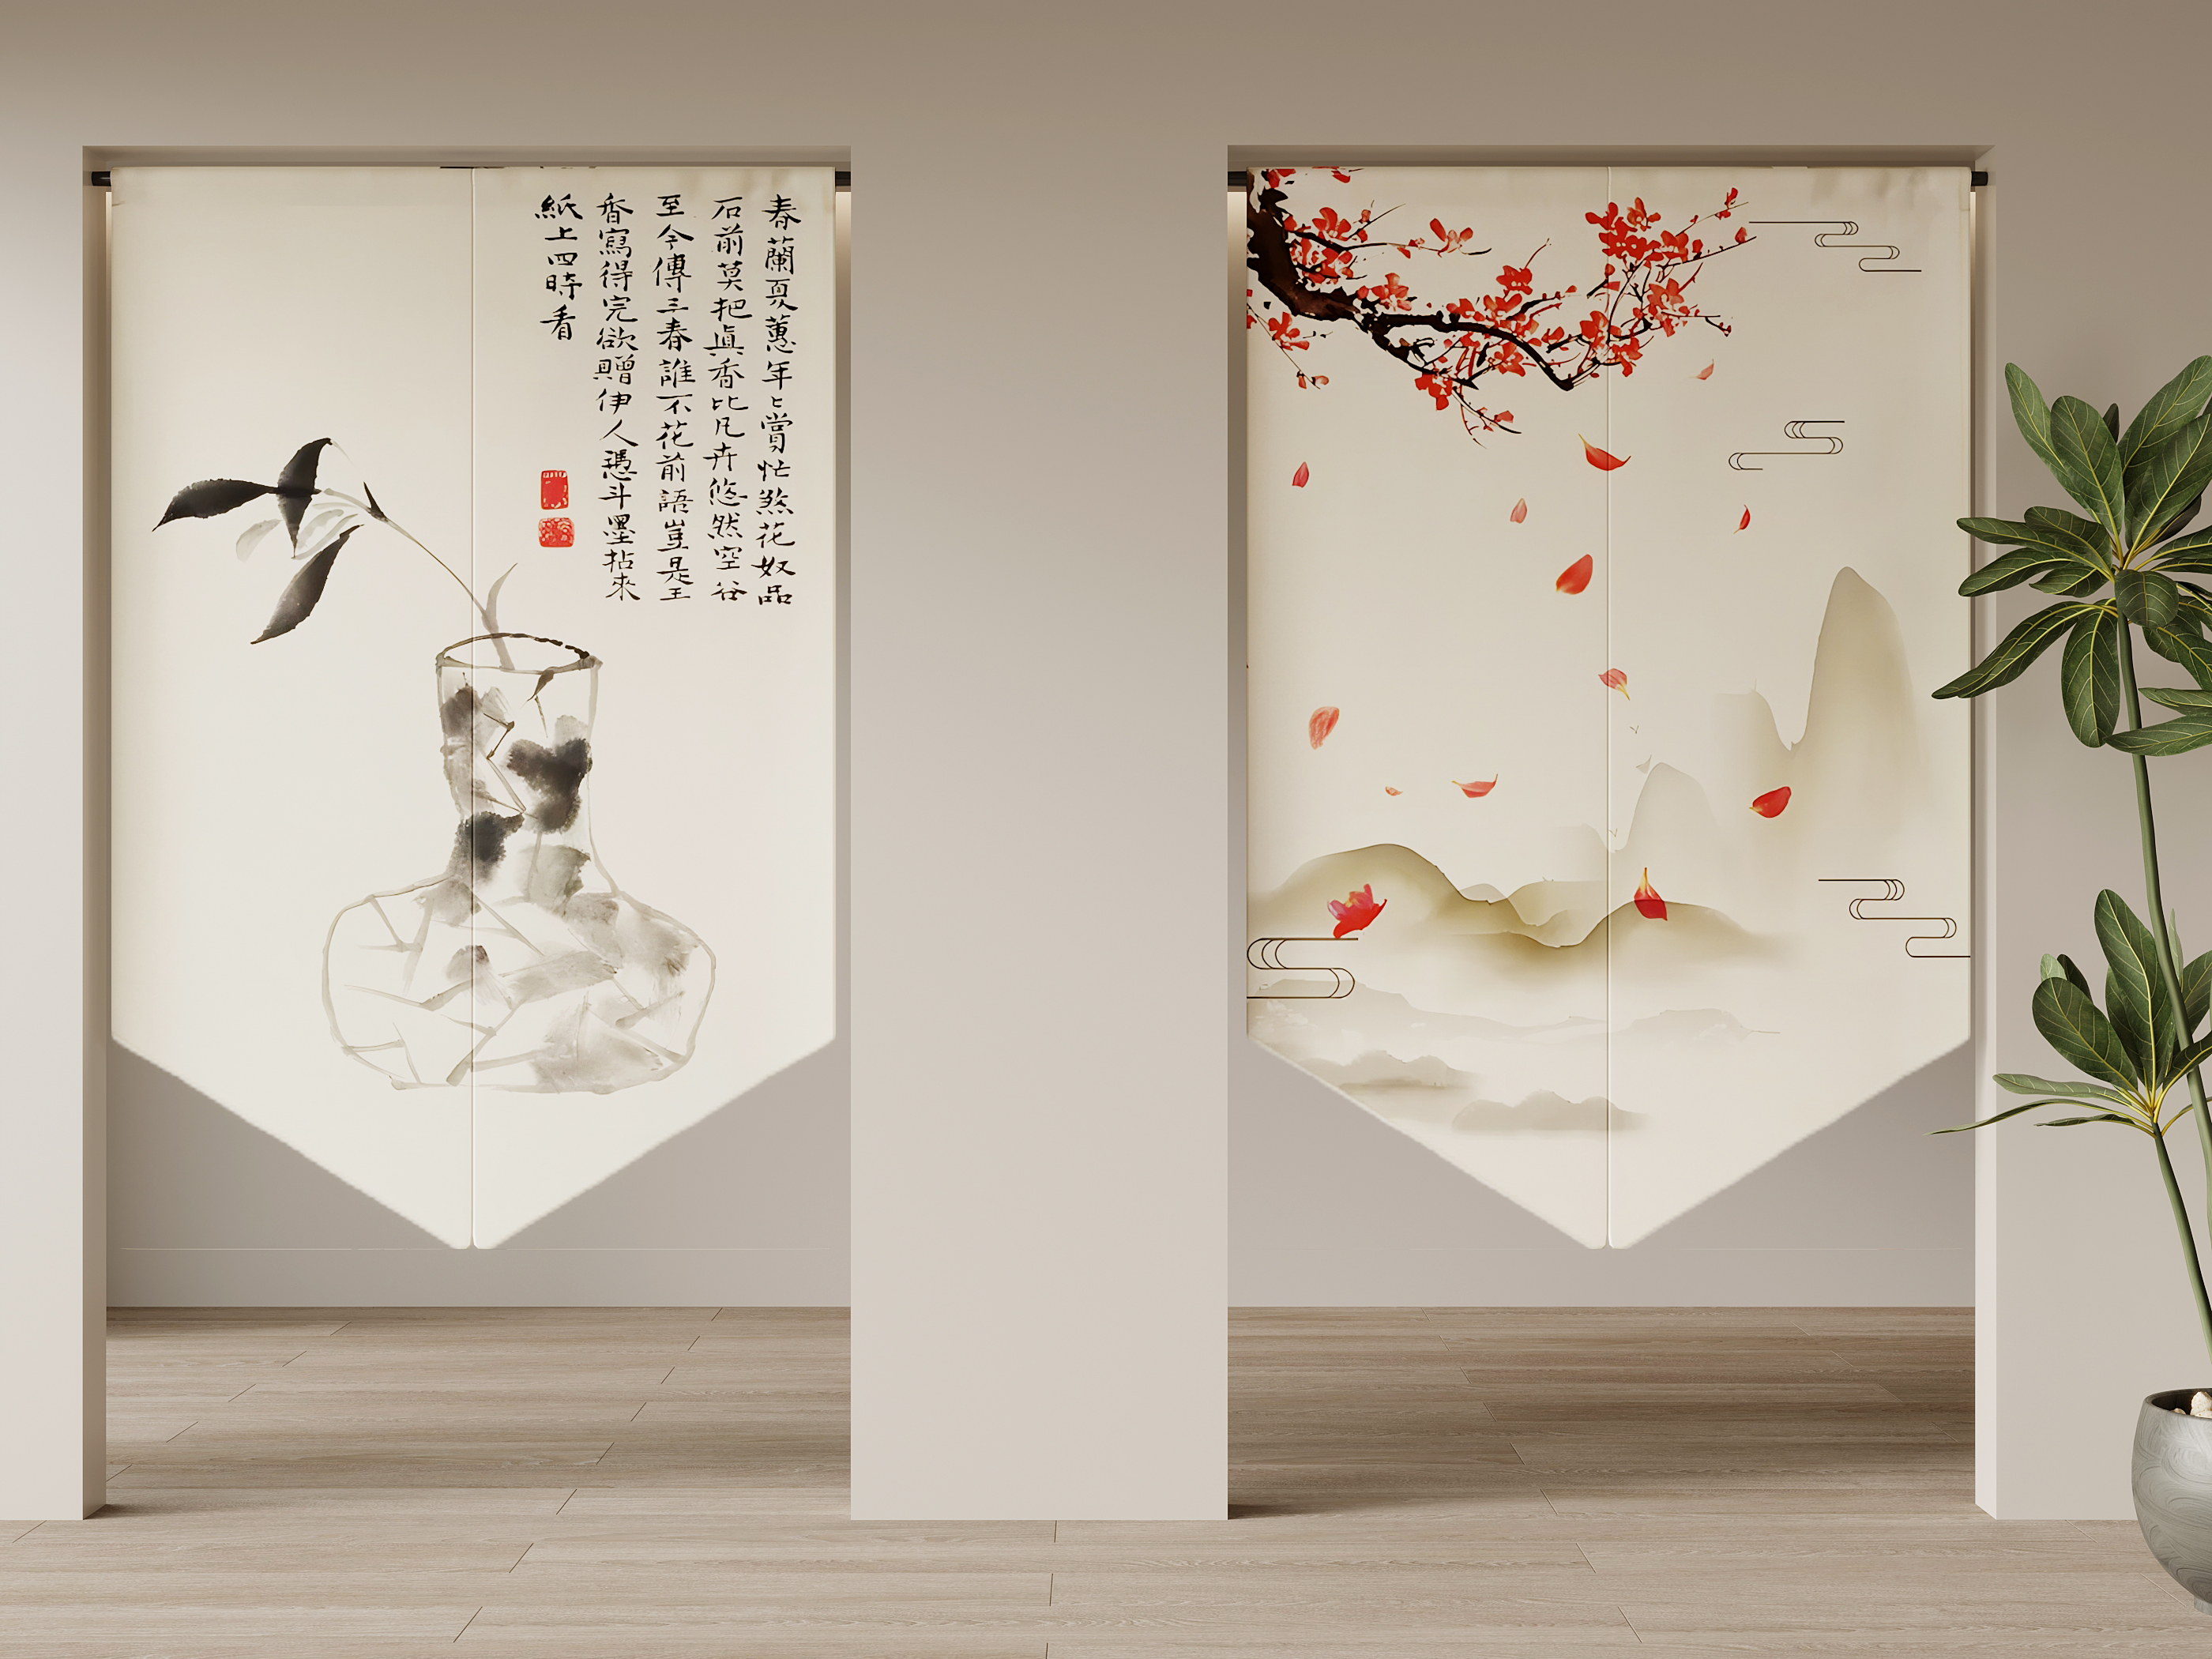 春蘭夏蕙年〻賞忙煞花奴品
石前莫把真香比凡卉悠然空谷
至今傳三春誰不花前語豈是王
香寫得完欲贈伊人憑斗墨拈來
紙上四時看